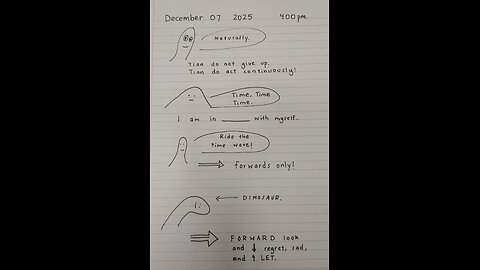 December 07 2025 400pm
Naturally.
Tian do not give up.
Tian do act continuously!
Time, Time
Time.
I am in ______ with myself.
Ride the
Time wave!
forwards only!
DINOSAUR.
FORWARD look
and ↓ regret, sad,
and ↑ LET.